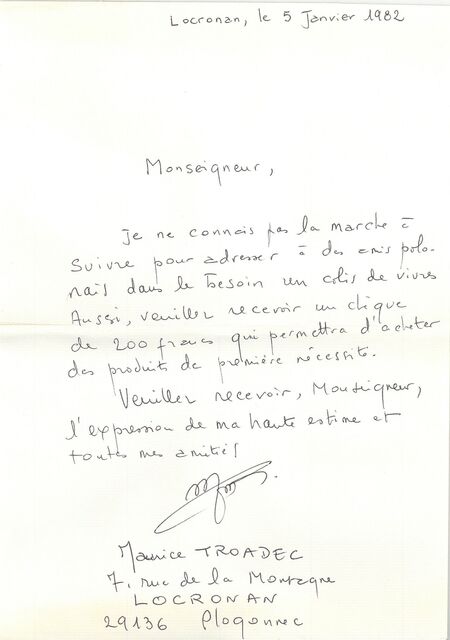 Locronan, le 5 Janvier 1982
Monseigneur,
Je ne connais pas la marche à
suivre pour adresser à des amis polo-
nais dans le besoin un colis de vivres
Aussi, veuillez recevoir un chèque
de 200 francs qui permettra d'acheter
des produits de première nécessité.
Veuillez recevoir, Monseigneur,
l'expression de ma haute estime et
toutes mes amitiés
Maurice TROADEC
7, rue de la Montagne
LOCRONAN
29136 Plogonnec